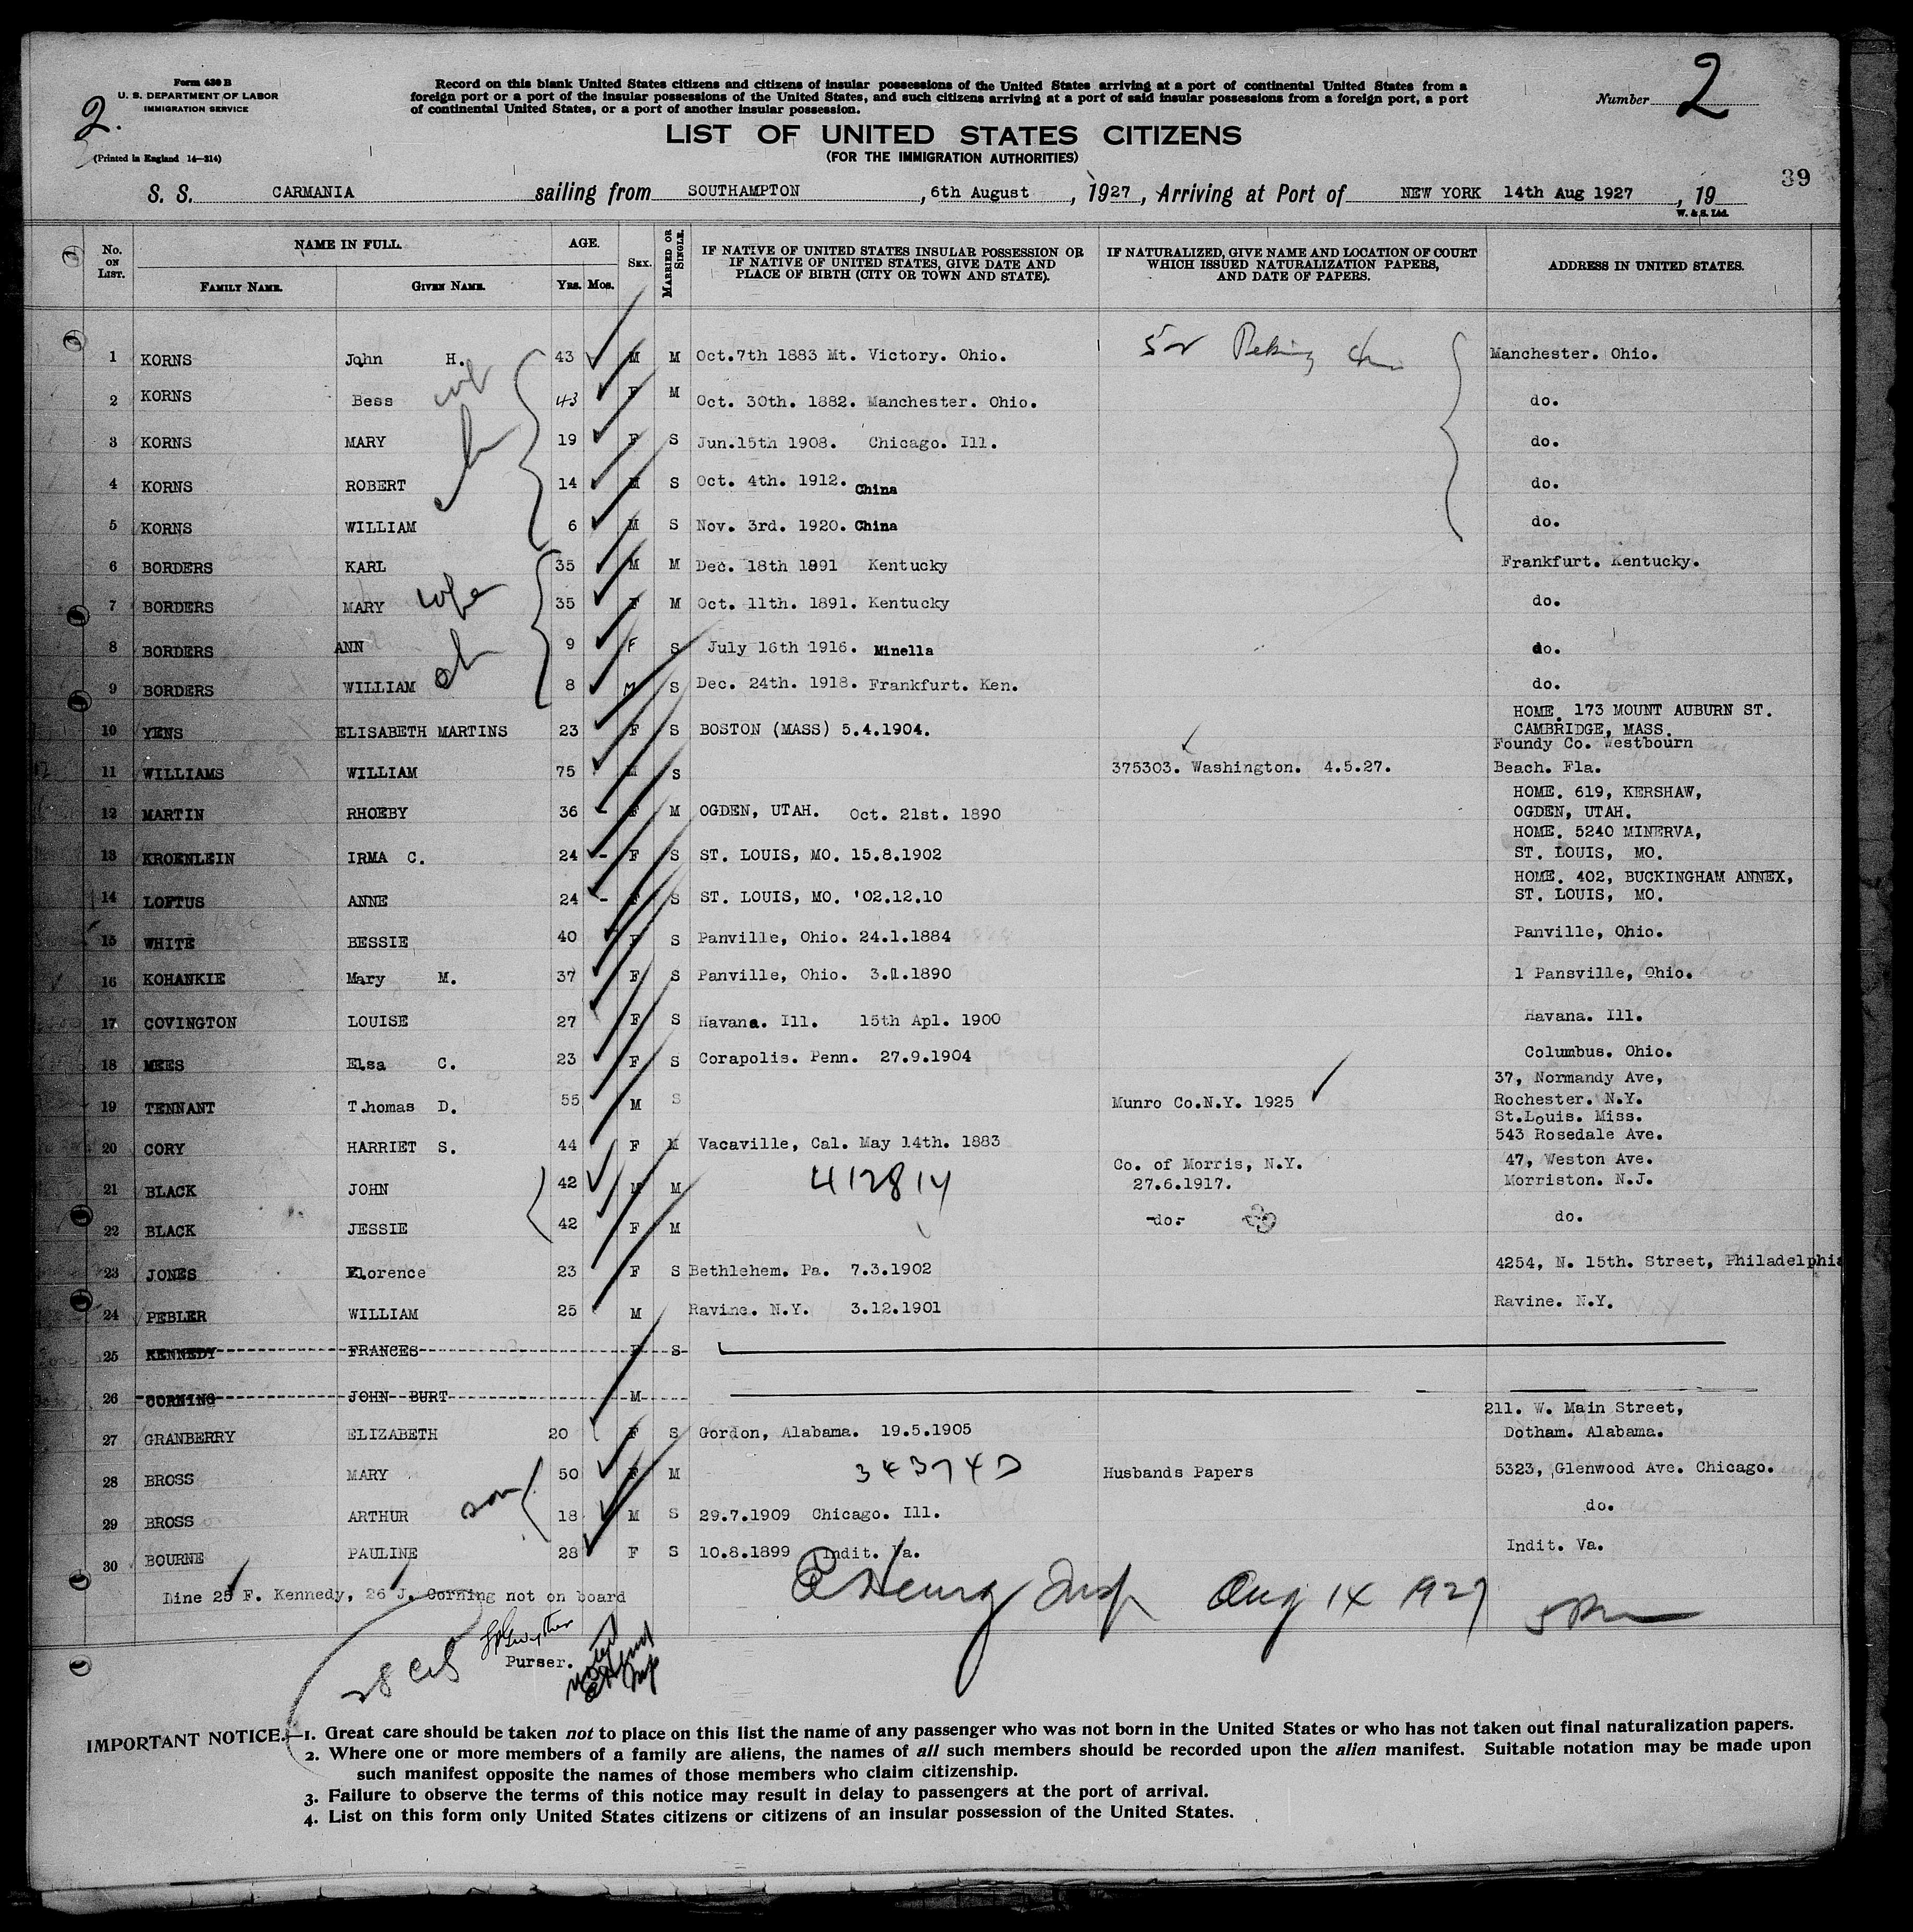 Form 630 B
U. S. DEPARTMENT OF LABOR
IMMIGRATION SERVICE
2.
(Printed in England 14—214)
Record on this blank United States citizens and citizens of insular possessions of the United States arriving at a port of continental United States from a
foreign port or a port of the insular possessions of the United States, and such citizens arriving at a port of said insular possessions from a foreign port, a port
of continental United States, or a port of another insular possession.
Number 2
LIST OF UNITED STATES CITIZENS
(FOR THE IMMIGRATION AUTHORITIES)
39
S. S. CARMANIA sailing from SOUTHAMPTON , 6th August , 1927 , Arriving at Port of NEW YORK 14th Aug 1927 , 19
W. & S. Ltd.
No. ON LIST. NAME IN FULL. FAMILY NAME. GIVEN NAME. AGE. YRS. MOS. SEX. MARRIED OR SINGLE. IF NATIVE OF UNITED STATES INSULAR POSSESSION OR IF NATIVE OF UNITED STATES, GIVE DATE AND PLACE OF BIRTH (CITY OR TOWN AND STATE). IF NATURALIZED, GIVE NAME AND LOCATION OF COURT WHICH ISSUED NATURALIZATION PAPERS, AND DATE OF PAPERS. ADDRESS IN UNITED STATES.
1 KORNS John H. 43 M M Oct.7th 1883 Mt. Victory. Ohio. Peking Manchester. Ohio.
2 KORNS Bess 43 F M Oct. 30th. 1882. Manchester. Ohio. do.
3 KORNS MARY 19 F S Jun.15th 1908. Chicago. Ill. do.
4 KORNS ROBERT 14 M S Oct. 4th. 1912. China do.
5 KORNS WILLIAM 6 M S Nov. 3rd. 1920. China do.
6 BORDERS KARL 35 M M Dec. 18th 1891 Kentucky Frankfurt. Kentucky.
7 BORDERS MARY wife 35 F M Oct. 11th. 1891. Kentucky do.
8 BORDERS ANN ch 9 F S July 16th 1916. Minella do.
9 BORDERS WILLIAM 8 M S Dec. 24th. 1918. Frankfurt. Ken. do.
10 YENS ELISABETH MARTINS 23 F S BOSTON (MASS) 5.4.1904. HOME. 173 MOUNT AUBURN ST. CAMBRIDGE, MASS.
11 WILLIAMS WILLIAM 75 M S 375303. Washington. 4.5.27. Foundy Co. Westbourn Beach. Fla.
12 MARTIN RHOEBY 36 F M OGDEN, UTAH. Oct. 21st. 1890 HOME. 619, KERSHAW, OGDEN, UTAH.
13 KROENLEIN IRMA C. 24 F S ST. LOUIS, MO. 15.8.1902 HOME. 5240 MINERVA, ST. LOUIS, MO.
14 LOFTUS ANNE 24 F S ST. LOUIS, MO. '02.12.10 HOME. 402, BUCKINGHAM ANNEX, ST. LOUIS, MO.
15 WHITE BESSIE 40 F S Panville, Ohio. 24.1.1884 Panville, Ohio.
16 KOHANKIE Mary M. 37 F S Panville, Ohio. 3.1.1890 1 Pansville, Ohio.
17 COVINGTON LOUISE 27 F S Havana. Ill. 15th Apl. 1900 Havana. Ill.
18 MEES Elsa C. 23 F S Corapolis. Penn. 27.9.1904 Columbus. Ohio.
19 TENNANT T.homas D. 55 M S Munro Co.N.Y. 1925 37, Normandy Ave, Rochester. N.Y.
20 CORY HARRIET S. 44 F M Vacaville, Cal. May 14th. 1883 St.Louis. Miss. 543 Rosedale Ave.
21 BLACK JOHN 42 M M 412814 Co. of Morris, N.Y. 27.6.1917. 47, Weston Ave. Morriston. N.J.
22 BLACK JESSIE 42 F M -do.- do.
23 JONES Florence 23 F S Bethlehem. Pa. 7.3.1902 4254, N. 15th. Street, Philadelphia
24 PEBLER WILLIAM 25 M Ravine. N.Y. 3.12.1901 Ravine. N.Y.
25 KENNEDY FRANCES F S
26 CORNING JOHN BURT M
27 GRANBERRY ELIZABETH 20 F S Gordon, Alabama. 19.5.1905 211. W. Main Street, Dotham. Alabama.
28 BROSS MARY 50 F M 343747 Husbands Papers 5323, Glenwood Ave. Chicago.
29 BROSS ARTHUR son 18 M S 29.7.1909 Chicago. Ill. do.
30 BOURNE PAULINE 28 F S 10.8.1899 Indit. Va. Indit. Va.
Line 25 F. Kennedy, 26 J. Corning not on board
Henry Insp Aug 14 1927
28
Purser.
IMPORTANT NOTICE.—1. Great care should be taken not to place on this list the name of any passenger who was not born in the United States or who has not taken out final naturalization papers.
2. Where one or more members of a family are aliens, the names of all such members should be recorded upon the alien manifest. Suitable notation may be made upon
such manifest opposite the names of those members who claim citizenship.
3. Failure to observe the terms of this notice may result in delay to passengers at the port of arrival.
4. List on this form only United States citizens or citizens of an insular possession of the United States.